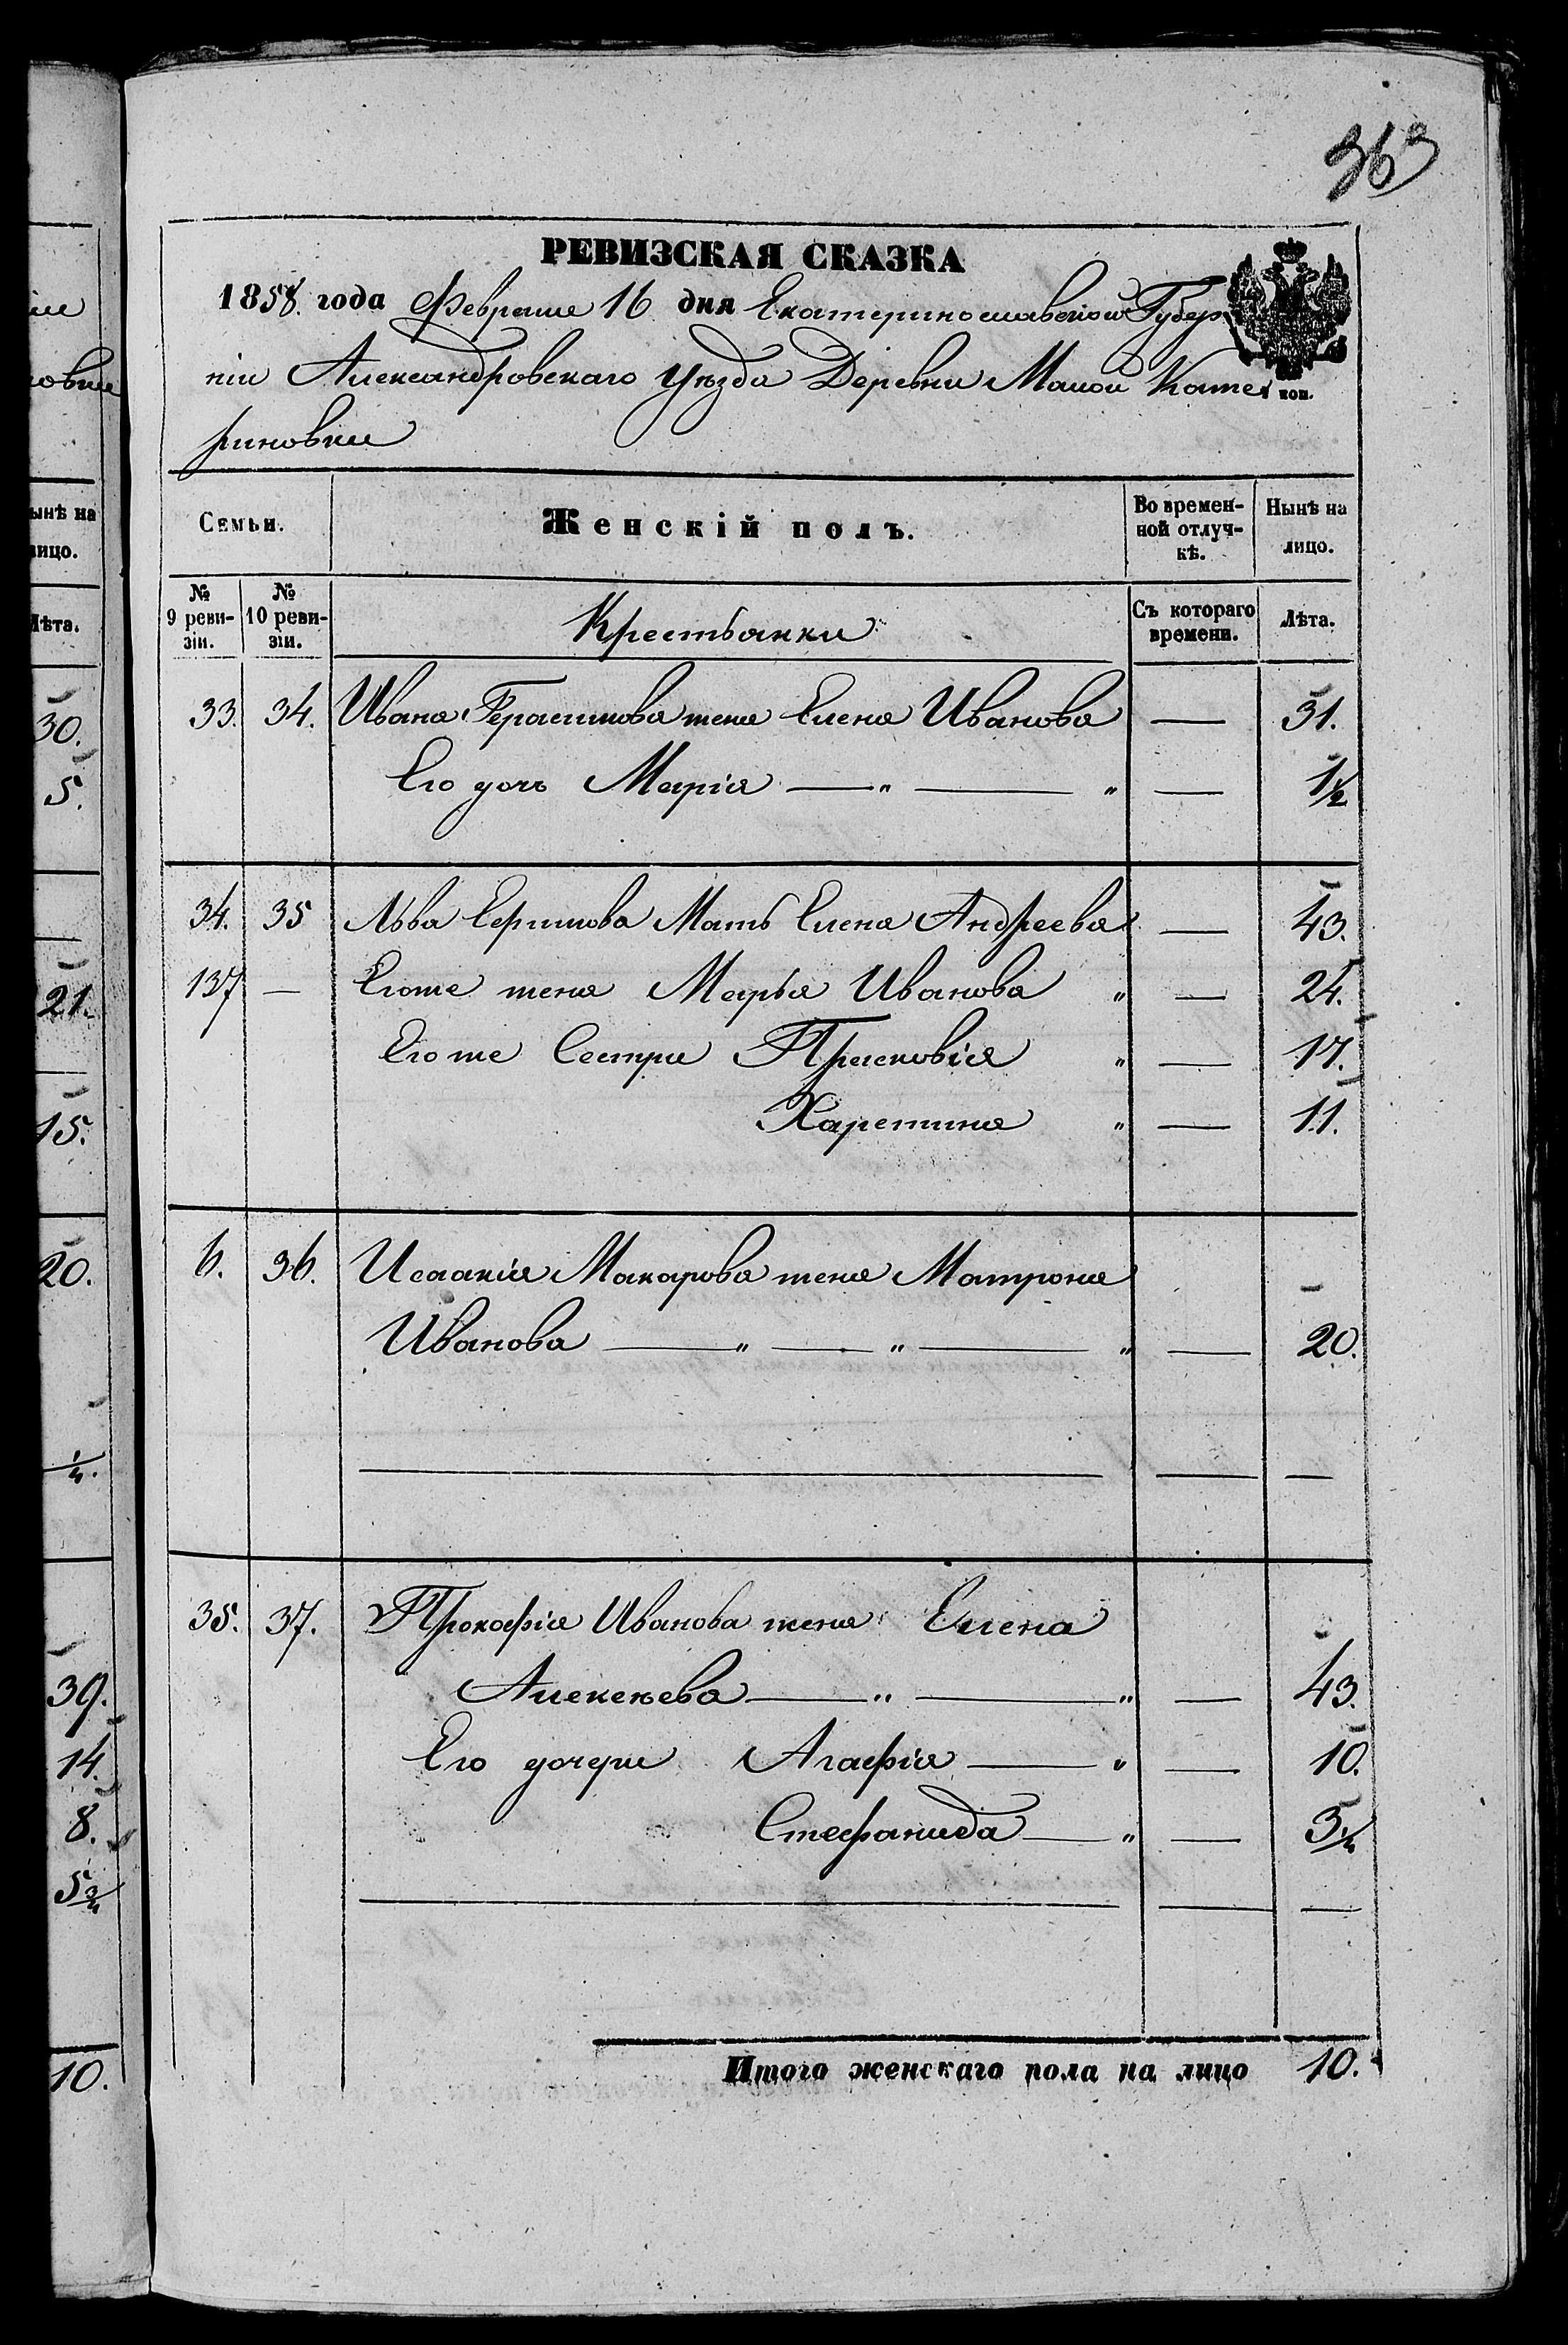 363
РЕВИЗСКАЯ СКАЗКА
1858. года Февраля 16 дня Екатеринославской Губер
ніи Александровскаго Уѣзда Деревни Малой Кате
коп.
риновки
Семьи. Женскій полъ. Во времен-ной отлуч-кѣ. Нынѣ на лицо.
№ 9 реви-зіи. № 10 реви-зіи. Крестьянки Съ котораго времени. Лѣта.
33. 34. Ивана Герасимова жена Елена Иванова — 31.
Его дочь Марія — „ — „ — 1½
34. 35 Льва Мать Елена Андреева — 43.
137 — Егоже жена Марья Иванова „ — 24.
Егоже Сестры Прасковія „ — 17.
Харетина „ — 11.
6. 36. Исаакія Макарова жена Матрона
Иванова — „ — „ — „ — 20.
35. 37. Прокофія Иванова жена Елена
Алексѣева — „ — „ — 43.
Его дочери Агафія — „ — 10.
Стефанида — „ — 3¼
Итого женскаго пола на лицо 10.
ынѣ на
лицо.
Лѣта.
30.
5.
21.
15.
20.
¼.
39.
14.
8.
5¾
10.